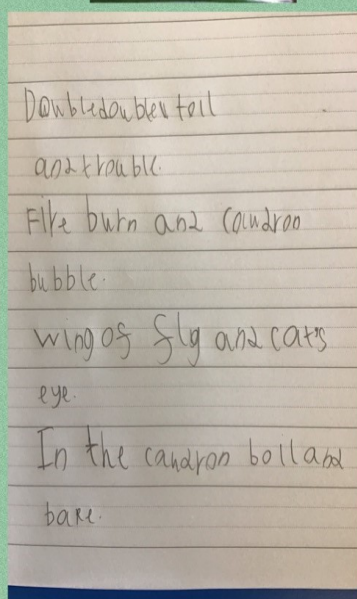 Doubledouble toil
and trouble.
Fire burn and Caudron
bubble.
wing of fly and cat's
eye.
In the caudron boil and
bake.